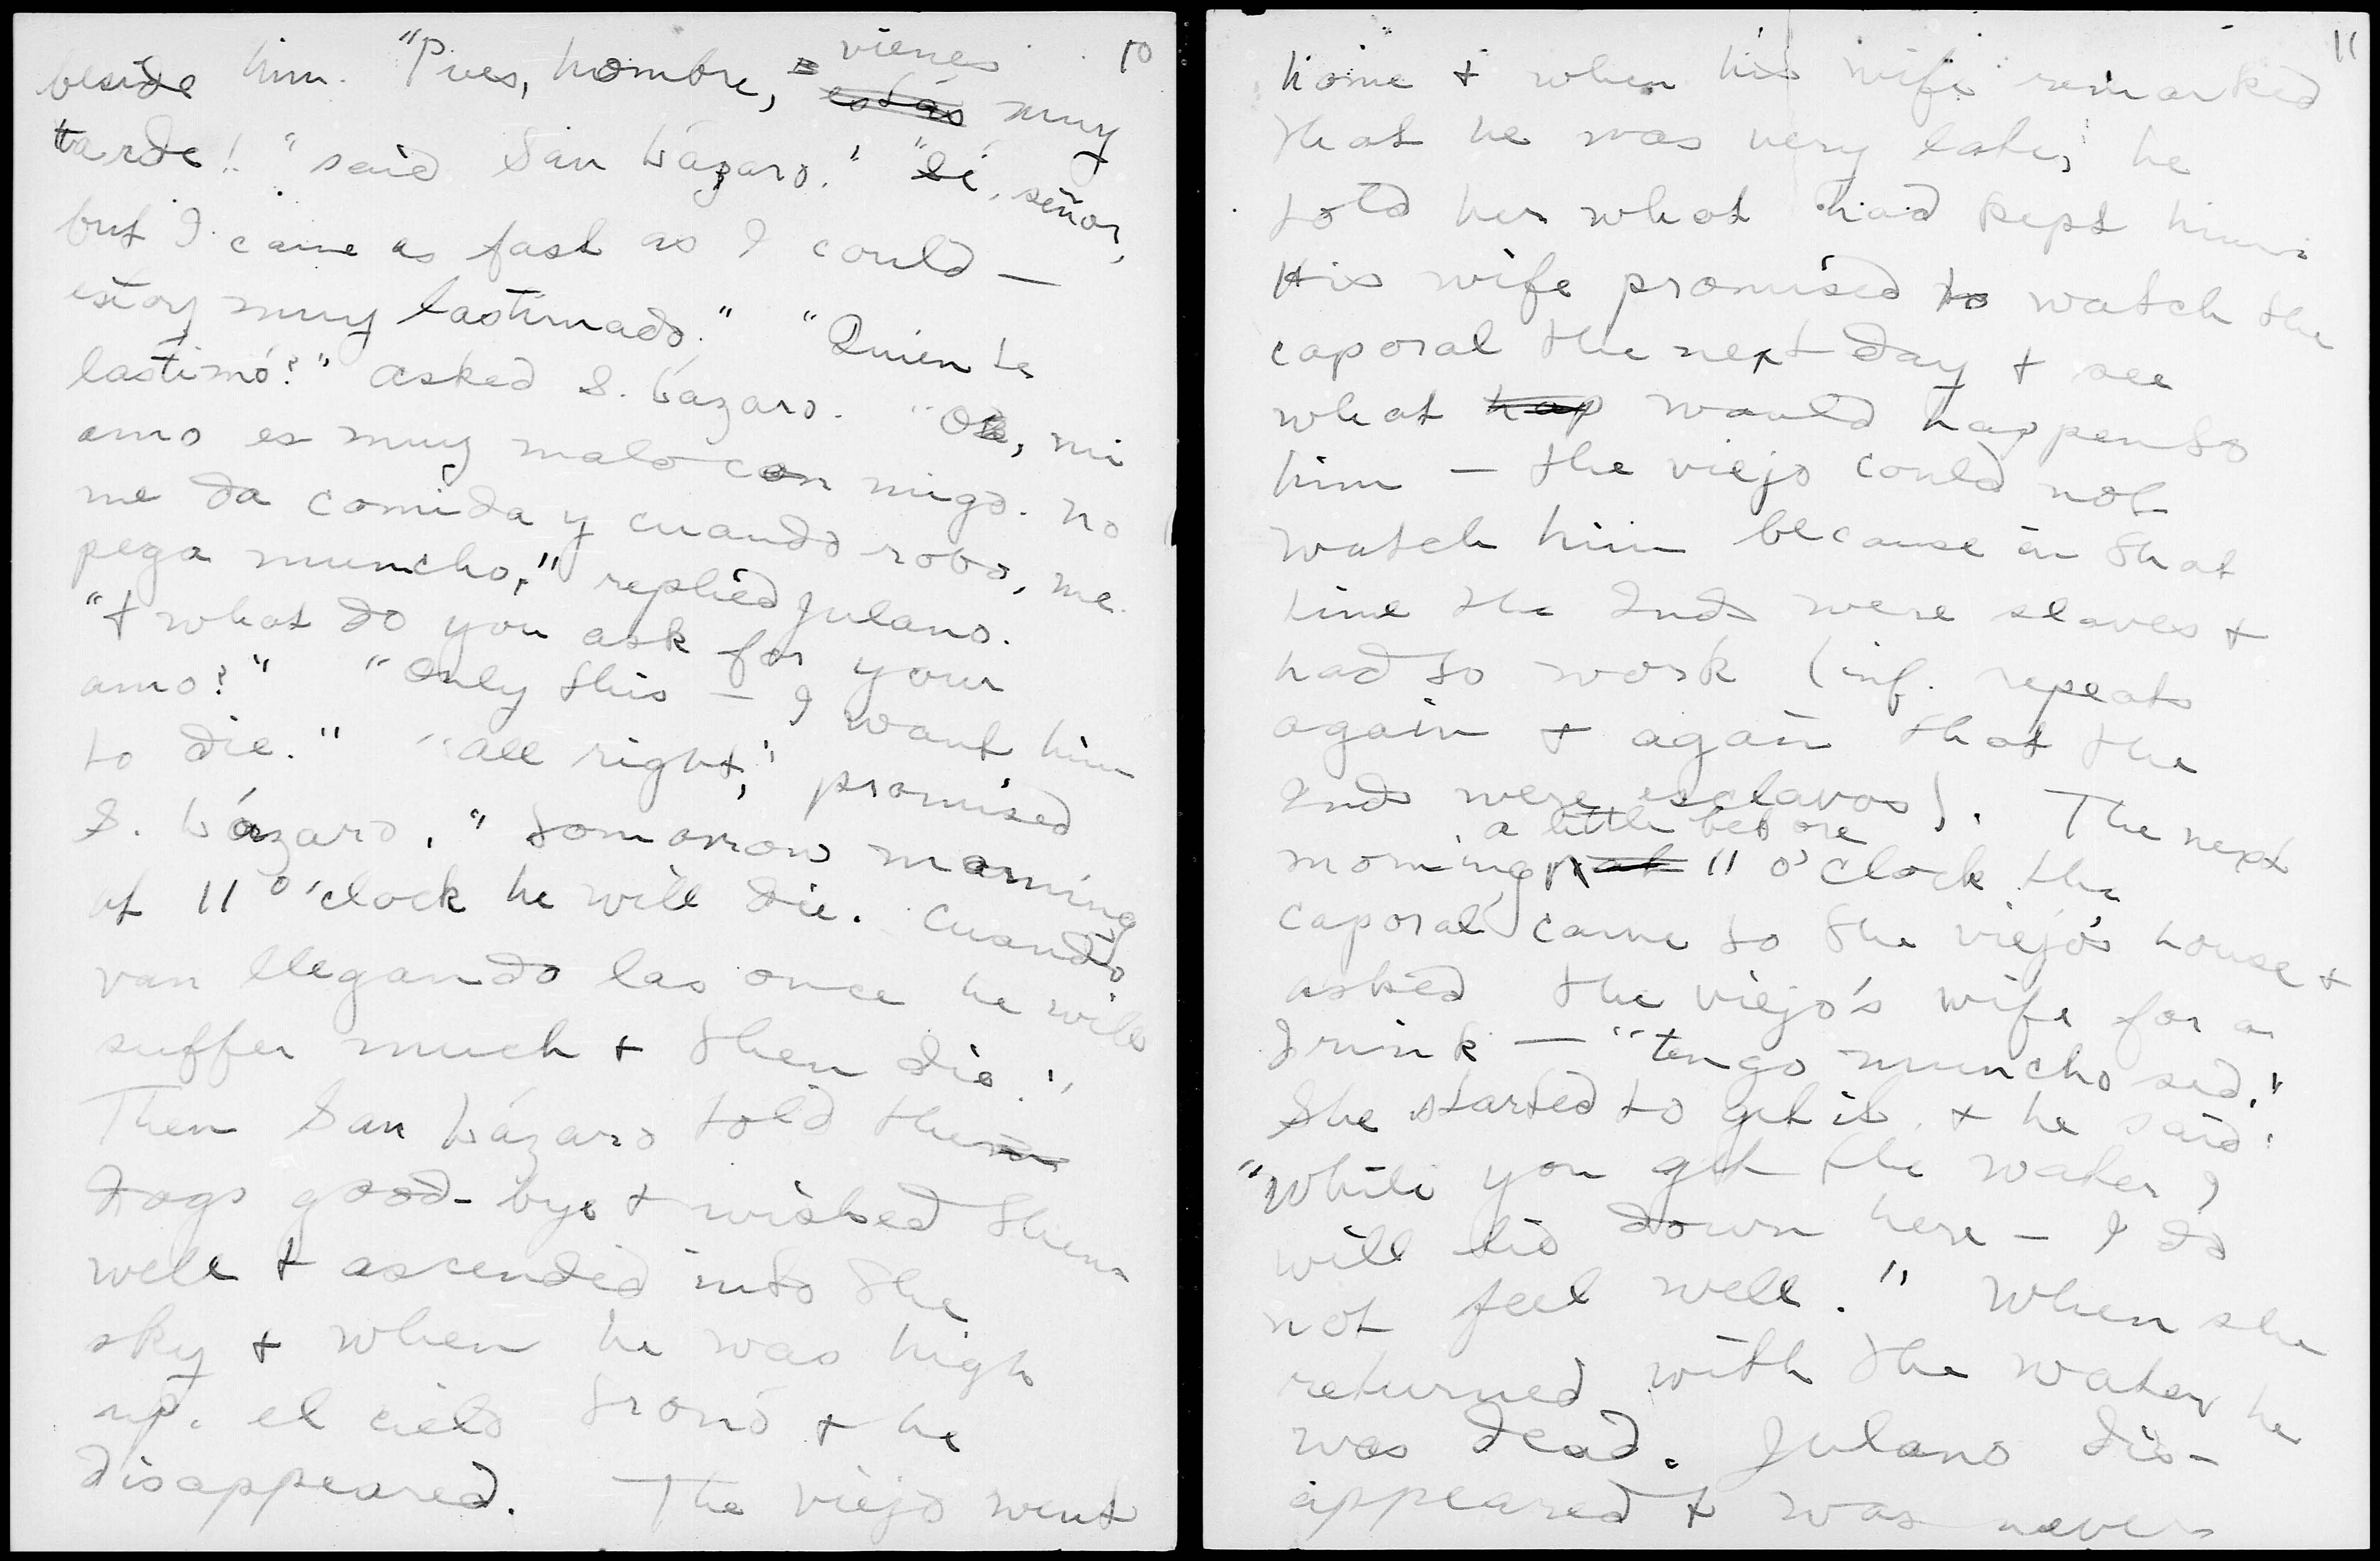 10
beside him. "Pues, hombre, vienes estás muy
tarde!" said San Lázaro. "Sí, señor,
but I came as fast as I could —
estoy muy lastimado." "Quien te
lastimó?" asked S. Lázaro. "Oh, mi
amo es muy malo con migo. No
me da comida y cuando robo, me
pega muncho," replied Julano.
"& what do you ask for your
amo?" "Only this — I want him
to die." "All right," promised
S. Lázaro, "tomorrow morning
at 11 o'clock he will die. Cuando
van llegando las once he will
suffer much & then die."
Then San Lázaro told them
dogs good-bye & wished them
well & ascended into the
sky & when he was high
up, el cielo tronó & he
disappeared. The viejo went
11
home & when his wife remarked
that he was very late, he
told her what had kept him.
His wife promised to watch the
caporal the next day & see
what hap would happen to
him — the viejo could not
watch him because in that
time the Inds were slaves &
had to work (inf. repeats
again & again that the
Inds were esclavos). The next
a little before
morning at 11 o'clock the
caporal came to the viejo's house &
asked the viejo's wife for a
drink — "tengo muncho sed."
She started to get it & he said:
"While you get the water I
will lie down here — I do
not feel well." When she
returned with the water he
was dead. Julano dis-
appeared & was never